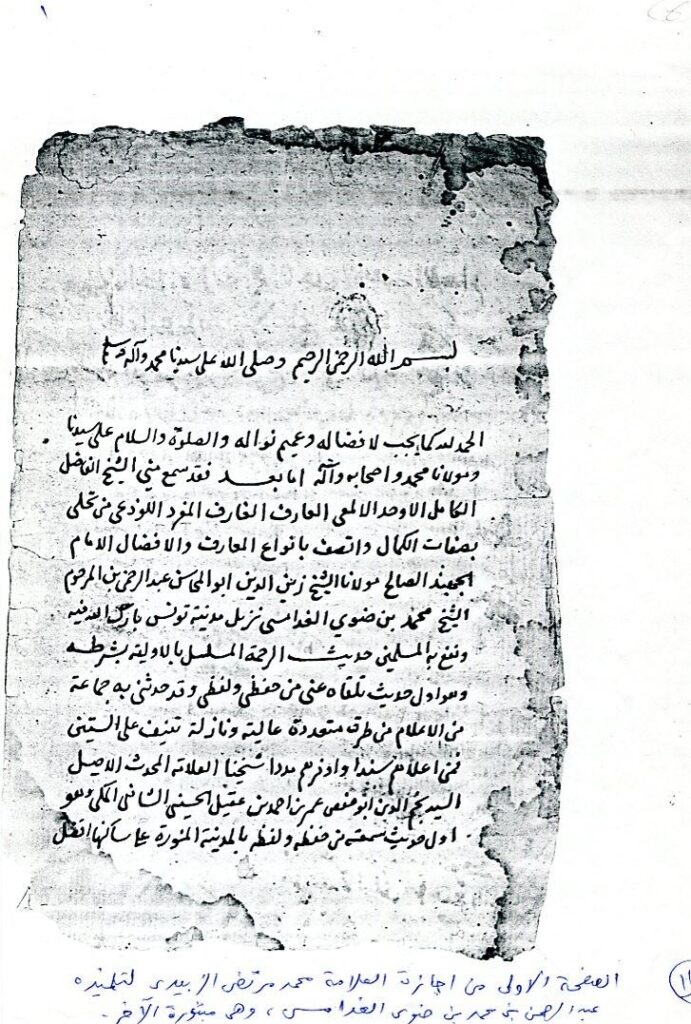 ١
بسم الله الرحمن الرحيم وصلى الله على سيدنا محمد وآله وسلم
الحمد لله كما يجب لافضاله وعميم نواله والصلوة والسلام على سيدنا
ومولانا محمد واصحابه وآله اما بعد فقد سمع مني الشيخ الفاضل
الكامل الاوحد الالمعي العارف الغارف المفرد اللوذعي من تحلى
بصفات الكمال واتصف بانواع المعارف والافضال الامام
الصالح مولانا الشيخ زين الدين ابو المحاسن عبد الرحمن بن المرحوم
الشيخ محمد بن ضوي الغدامسي نزيل مدينة تونس بارك الله فيه
ونفع به المسلمين حديث الرحمة المسلسل بالاولية بشرطه
وهو اول حديث تلقاه عني من حفظي ولفظي وقد حدثني به جماعة
من الاعلام من طرق متعددة عالية ونازلة تنيف على الستين
فمن اعلاهم سندا واوفرهم مددا شيخنا العلامة المحدث الاصيل
السيد نجم الدين ابو حفص عمر بن احمد بن عقيل الحسيني الشافعي المكي وهو
اول حديث سمعته من حفظه ولفظه بالمدينة المنورة على ساكنها افضل
الصفحة الأولى من اجازة العلامة محمد مرتضى الزبيدي لتلميذه
عبد الرحمن بن محمد بن ضوي الغدامسي، وهي مبتورة الآخر.